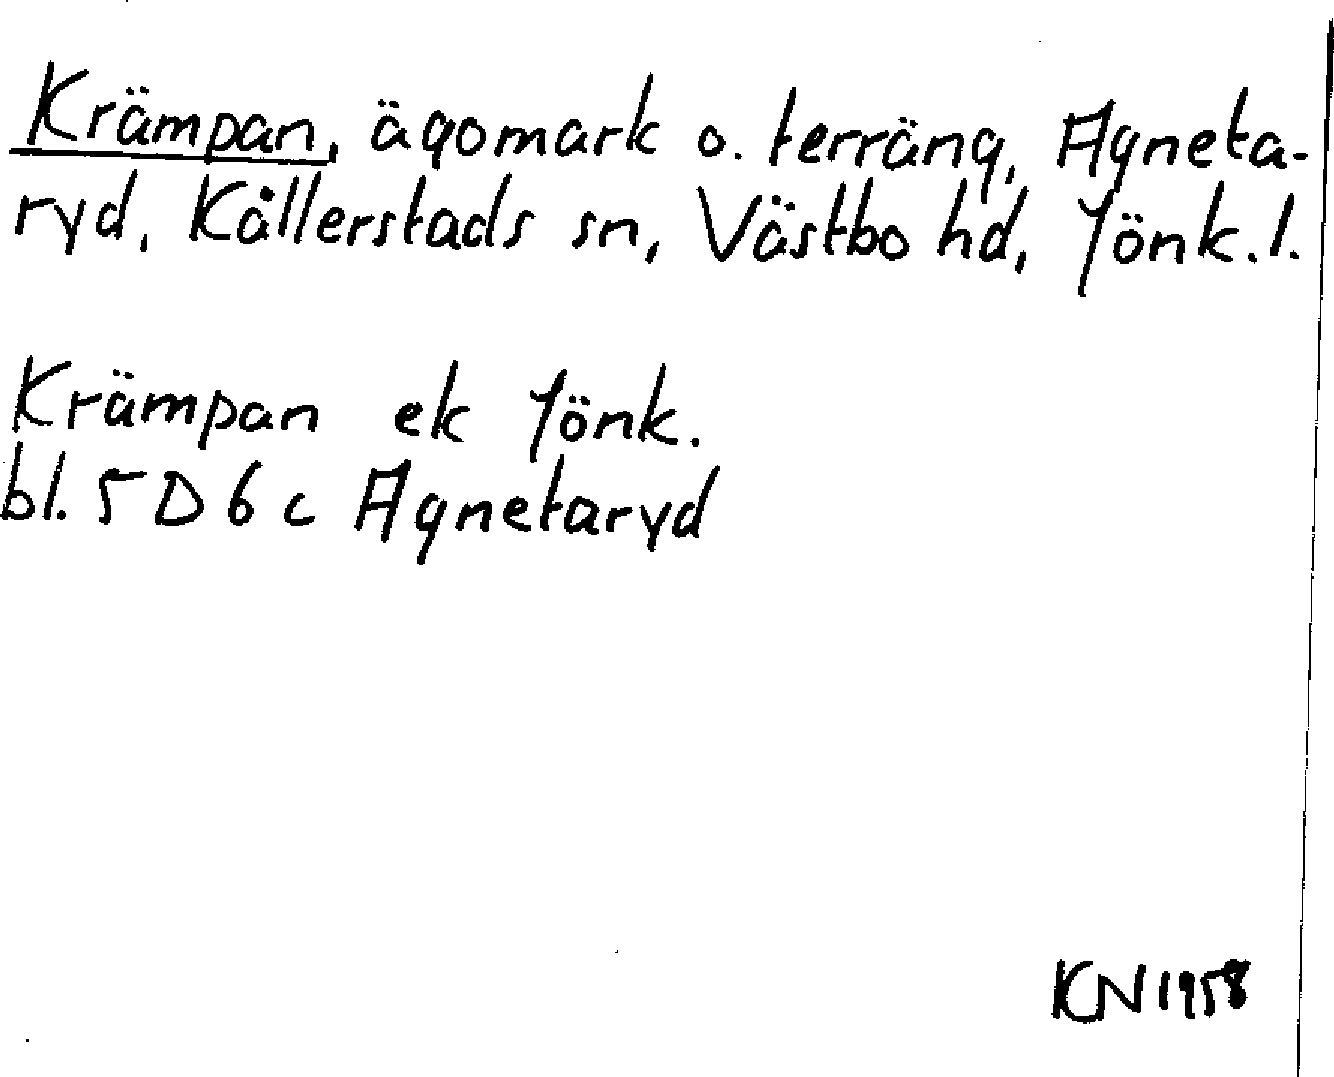 Krämpan, ägomark o. terräng, Agneta-
ryd, Kållerstads sn, Västbo hd, Jönk. l.
Krämpan ek Jönk.
bl. 5D6c Agnetaryd
KN 1958